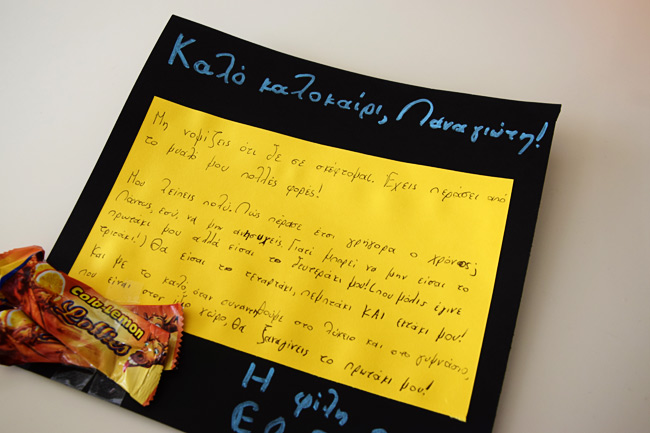 Καλό καλοκαίρι, Παναγιώτη!
Μη νομίζεις ότι δε σε σκέφτομαι. Έχεις περάσει από
το μυαλό μου πολλές φορές!
Μου λείπεις πολύ. Πώς πέρασε έτσι γρήγορα ο χρόνος;
Πάντως, εσύ, να μην ανησυχείς. Γιατί μπορεί να μην είσαι το
πρωτάκι μου αλλά είσαι το δευτεράκι μου! (που μόλις έγινε
τριτάκι!) Θα είσαι το τεταρτάκι, πεμπτάκι ΚΑΙ εκτάκι μου!
Και με το καλό, όταν συναντηθούμε στο λύκειο και στο γυμνάσιο,
που είναι στον ίδιο χώρο, θα ξαναγίνεις το πρωτάκι μου!
Η φίλη
cola-lemon
Lollies